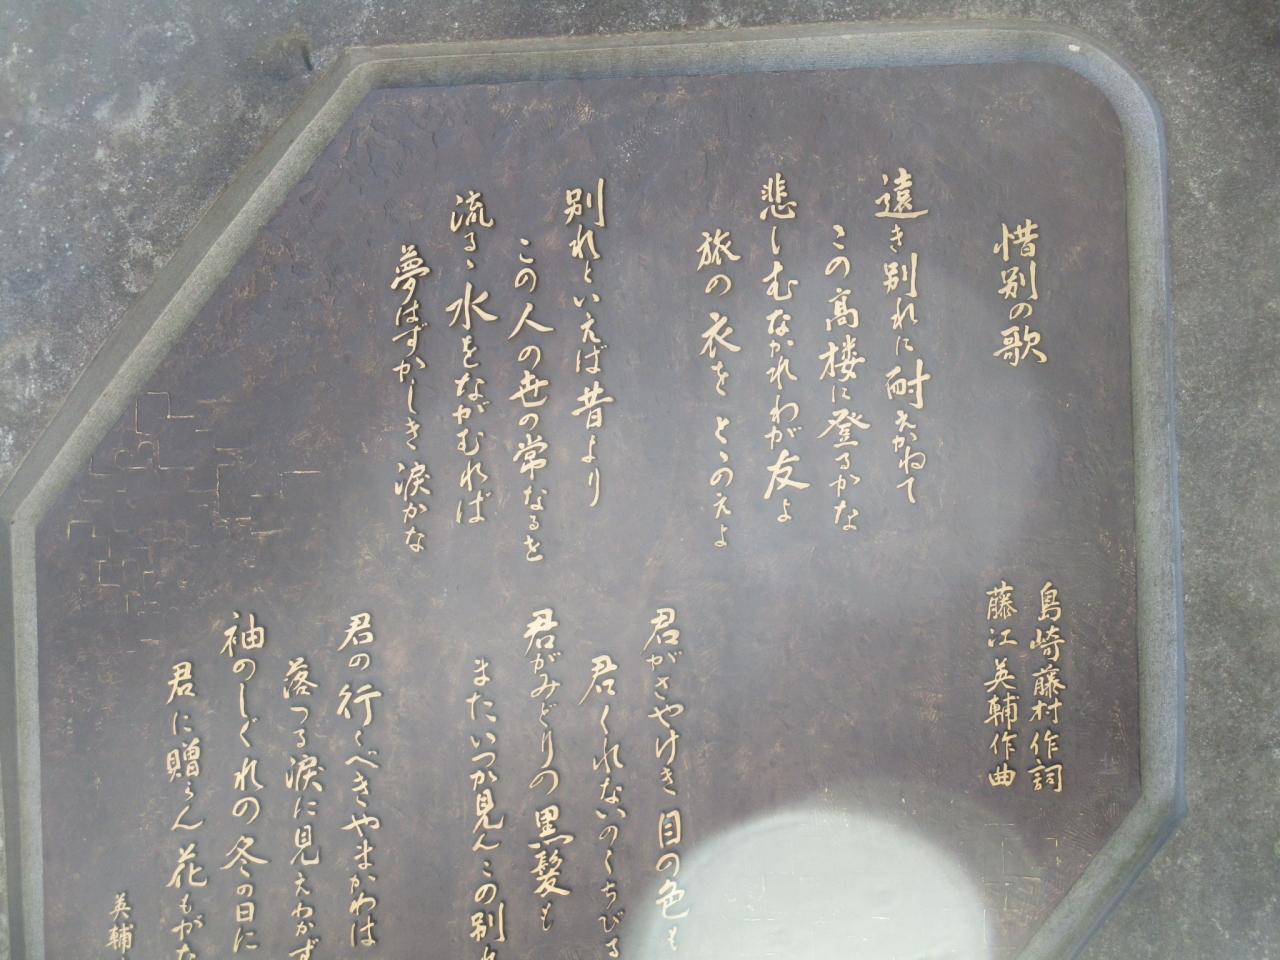 惜別の歌
島崎藤村作詞
藤江英輔作曲
遠き別れに耐えかねて
この高楼に登るかな
悲しむなかれわが友よ
旅の衣をとゝのえよ
別れといえば昔より
この人の世の常なるを
流るゝ水をながむれば
夢はずかしき涙かな
君がさやけき目の色も
君くれないのくちびる
君がみどりの黒髪も
またいつか見んこの別れ
君の行くべきやまかわは
落つる涙に見えわかず
袖のしぐれの冬の日に
君に贈らん花もがな
英輔